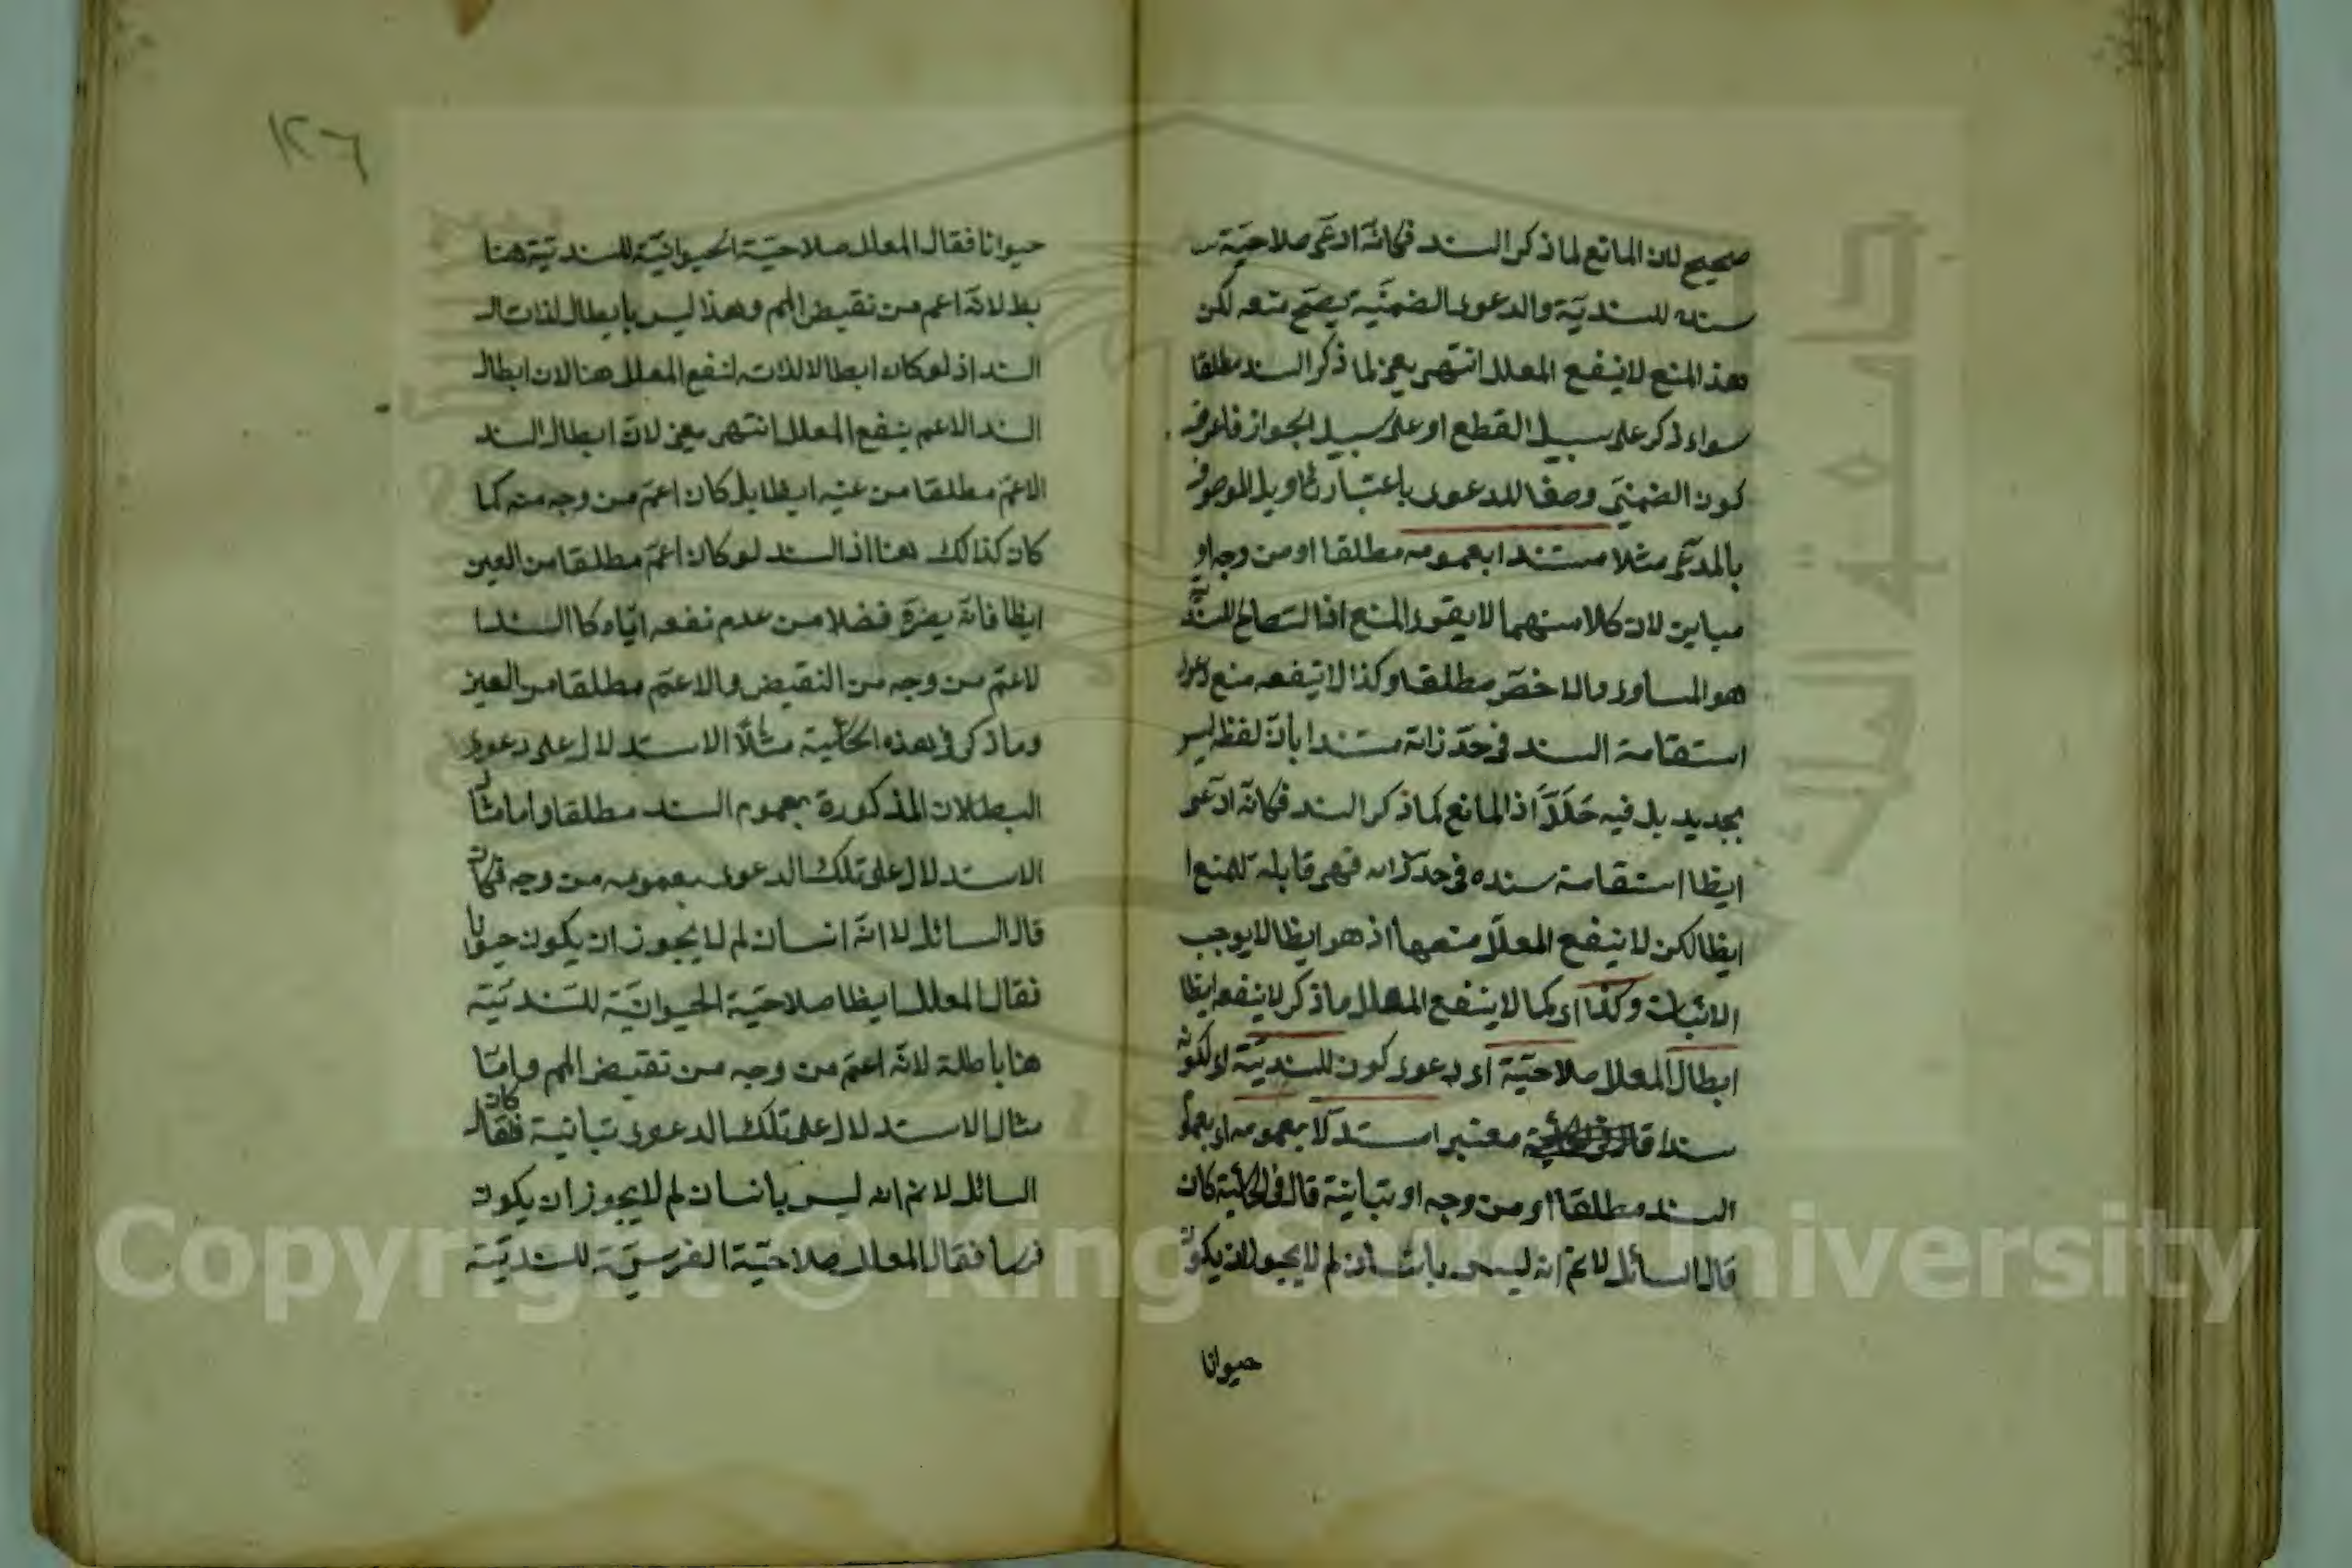 صحيح لان المانع لما ذكر السند فكانه ادعى صلاحية
سنده للسندية والدعوى الضمنية يصح منعه لكن
هذا المنع لا ينفع المعلل انتهى يعنى لما ذكر السند مطلقا
سواء ذكر على سبيل القطع او على سبيل الجواز فاعرف
كون الضمنى وصفا للدعوى باعتبار تأويل الموصوف
بالمدعى مثلا مستندا بعمومه مطلقا او من وجه او
مباين لان كلا منهما لا يقوى المنع اذ الصالح للسندية
هو المساوى والاخص مطلقا وكذا لا ينفعه منع دعوى
استقامة السند فى حد ذاته مستندا بأن لفظه ليس
بجديد بل فيه خللا اذ المانع لما ذكر السند فكانه ادعى
ايظا استقامة سنده فى حد ذاته فهى قابلة للمنع
ايظا لكن لا ينفع المعلل منعها اذ هو ايظا لا يوجب
الاثبات وكذا اى كما لا ينفع المعلل ما ذكر لا ينفعه ايظا
ابطال المعلل صلاحية اى دعوى كون للسندية اى لكونه
سندا معتبرا استدلالا بعمومه اى بعموم
السند مطلقا او من وجه او تباينة قال فى الحاشية كان
قال السائل لا نم انه ليس بانسان لم لا يجوز ان يكون
حيوانا
١٢٦
حيوانا فقال المعلل صلاحية الحيوانية للسندية هنا
بط لانه اعم من نقيض المم وهذا ليس بابطال لذات
السند اذ لو كان ابطالا لذاته لنفع المعلل هنا لان ابطال
السند الاعم ينفع المعلل انتهى يعنى لان ابطال السند
الاعم مطلقا من عينه ايظا بل كان اعم من وجه منه كما
كان كذالك هنا اذ السند لو كان اعم مطلقا من العين
ايظا فانه يضره فضلا من عدم نفعه اياه كا السند
لاعم من وجه من النقيض والاعم مطلقا من العين
وما ذكر فى هذه الحاشية مثال الاستدلال على دعوى
البطلان المذكورة بعموم السند مطلقا واما مثال
الاستدلال على تلك الدعوى بعمومه من وجه فكان
قال السائل لا انه انسان لم لا يجوز ان يكون حيوانا
فقال المعلل ايظا صلاحية الحيوانية للسندية
هنا باطلة لانه اعم من وجه من نقيض المم واما
مثال الاستدلال على تلك الدعوى تباينة فكان قال
السائل لا نم انه ليس بانسان لم لا يجوز ان يكون
فرسا فقال المعلل صلاحية الفرسية للسندية
Copyright © King Saud University